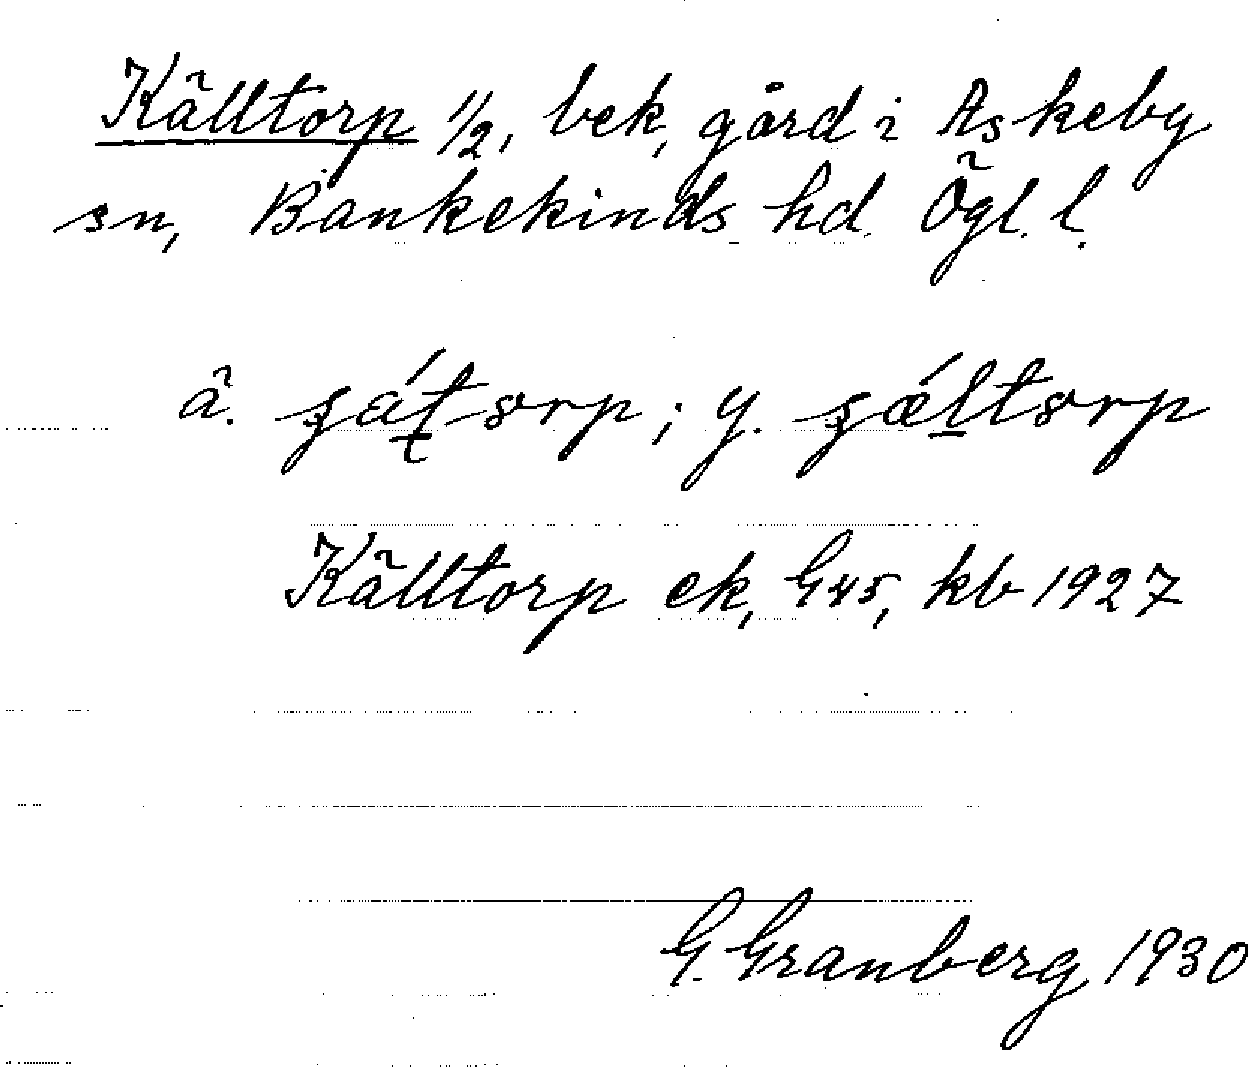 Källtorp 1/2, bek, gård i Askeby
sn, Bankekinds hd. Ögl. l.
ä.              ; y.
Källtorp ek, G45, kb 1927
G. Granberg 1930